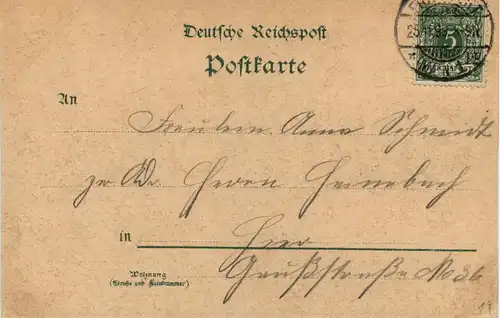 Deutsche Reichspost
Postkarte
5
An
Fräulein Anna Schmidt
zr Adr Herrn Heinebach
in Hier
Wohnung
(Straße und Hausnummer)
Graußstraße No 36
19